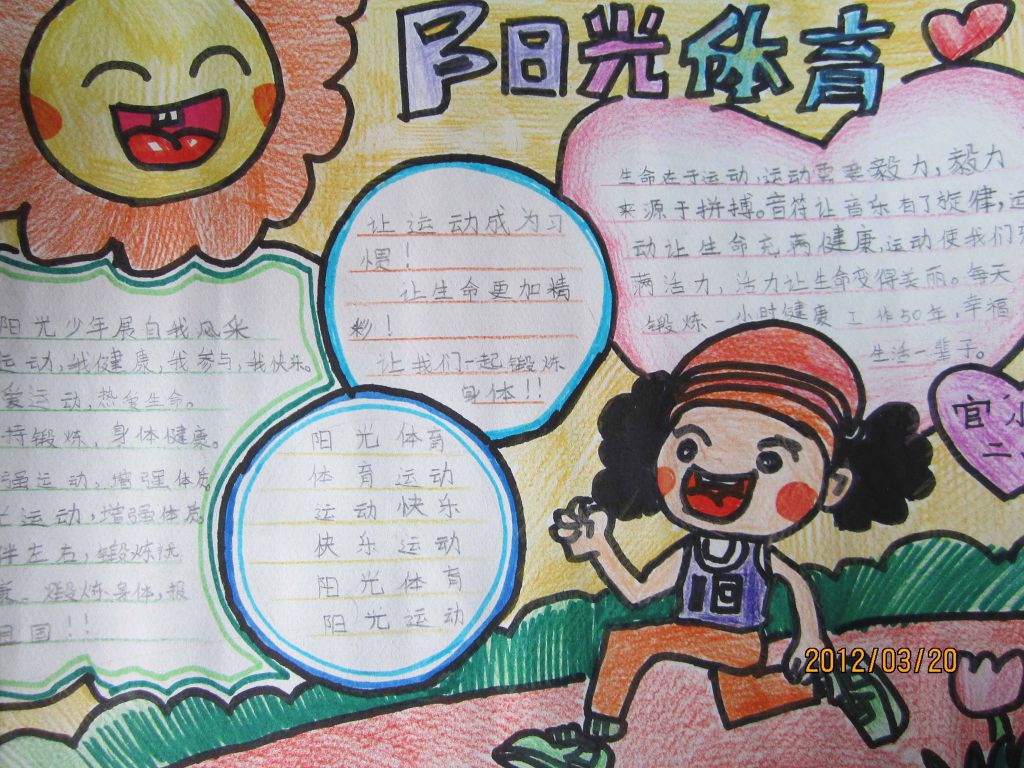 阳光体育
生命在于运动,运动需要毅力,毅力
来源于拼搏。音符让音乐有了旋律,运
动让生命充满健康,运动使我们充
满活力,活力让生命变得美丽。每天
锻炼一小时健康工作50年,幸福
生活一辈子。
让运动成为习
惯!
让生命更加精
彩!
让我们一起锻炼
身体!!
阳光少年展自我风采
运动,我健康,我参与,我快乐。
爱运动,热爱生命。
持锻炼,身体健康。
强运动,增强体质
运动,增强体质
伴左右,锻炼抗
锻炼身体,报
国!!
阳光体育
体育运动
运动快乐
快乐运动
阳光体育
阳光运动
官
二
2012/03/20